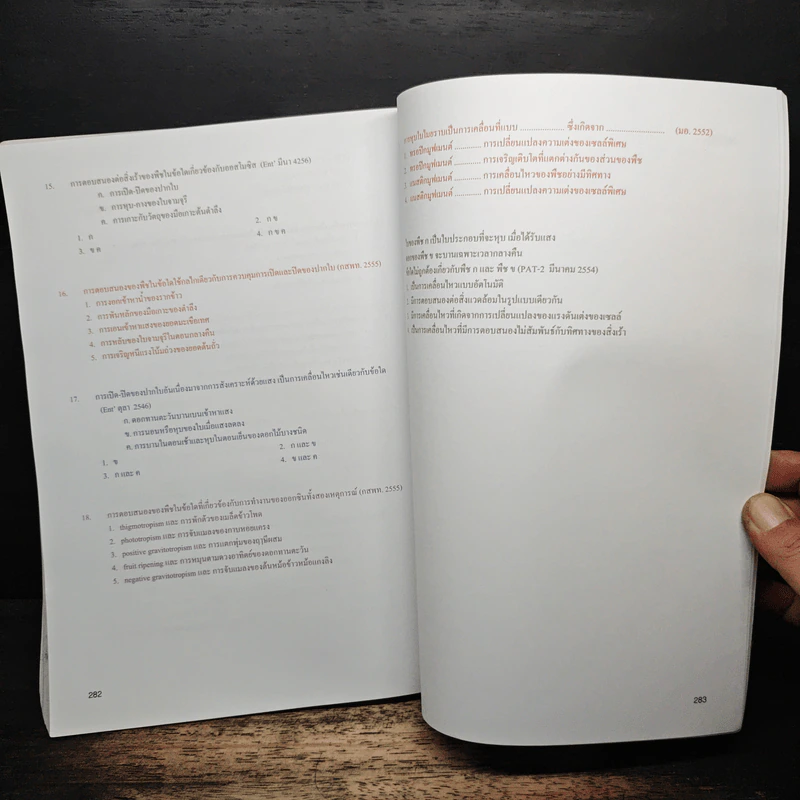 15. การตอบสนองต่อสิ่งเร้าของพืชในข้อใดเกี่ยวข้องกับออสโมซิส (Ent' มีนา 4256)
ก. การเปิด-ปิดของปากใบ
ข. การหุบ-กางของใบจามจุรี
ค. การเกาะกับวัตถุของมือเกาะต้นตำลึง
1. ก 2. ก ข
3. ข ค 4. ก ข ค
16. การตอบสนองของพืชในข้อใดใช้กลไกเดียวกับการควบคุมการเปิดและปิดของปากใบ (กสพท. 2555)
1. การงอกเข้าหาน้ำของรากข้าว
2. การพันหลักของมือเกาะของตำลึง
3. การเอนเข้าหาแสงของยอดมะเขือเทศ
4. การหลับของใบจามจุรีในตอนกลางคืน
5. การเจริญหนีแรงโน้มถ่วงของยอดต้นถั่ว
17. การเปิด-ปิดของปากใบอันเนื่องมาจากการสังเคราะห์ด้วยแสง เป็นการเคลื่อนไหวเช่นเดียวกับข้อใด
(Ent' ตุลา 2546)
ก. ดอกทานตะวันบานเบนเข้าหาแสง
ข. การนอนหรือหุบของใบเมื่อแสงลดลง
ค. การบานในตอนเช้าและหุบในตอนเย็นของดอกไม้บางชนิด
1. ข 2. ก และ ข
3. ก และ ค 4. ข และ ค
18. การตอบสนองของพืชในข้อใดที่เกี่ยวข้องกับการทำงานของออกซินทั้งสองเหตุการณ์ (กสพท. 2555)
1. thigmotropism และ การพักตัวของเมล็ดข้าวโพด
2. phototropism และ การจับแมลงของกาบหอยแครง
3. positive gravitotropism และ การแตกพุ่มของฤๅษีผสม
4. fruit ripening และ การหมุนตามดวงอาทิตย์ของดอกทานตะวัน
5. negative gravitotropism และ การจับแมลงของต้นหม้อข้าวหม้อแกงลิง
282
การหุบใบไมยราบเป็นการเคลื่อนที่แบบ ................ ซึ่งเกิดจาก ................ (มอ. 2552)
1. ทรอปิกมูฟเมนต์ ............ การเปลี่ยนแปลงความเต่งของเซลล์พิเศษ
2. ทรอปิกมูฟเมนต์ ............ การเจริญเติบโตที่แตกต่างกันของส่วนของพืช
3. แนสติกมูฟเมนต์ ............ การเคลื่อนไหวของพืชอย่างมีทิศทาง
4. แนสติกมูฟเมนต์ ............ การเปลี่ยนแปลงความเต่งของเซลล์พิเศษ
ใบของพืช ก เป็นใบประกอบที่จะหุบ เมื่อได้รับแสง
ดอกของพืช ข จะบานเฉพาะเวลากลางคืน
ข้อใดไม่ถูกต้องเกี่ยวกับพืช ก และ พืช ข (PAT-2 มีนาคม 2554)
เป็นการเคลื่อนไหวแบบอัตโนมัติ
มีการตอบสนองต่อสิ่งแวดล้อมในรูปแบบเดียวกัน
มีการเคลื่อนไหวที่เกิดจากการเปลี่ยนแปลงของแรงดันเต่งของเซลล์
เป็นการเคลื่อนไหวที่มีการตอบสนองไม่สัมพันธ์กับทิศทางของสิ่งเร้า
283